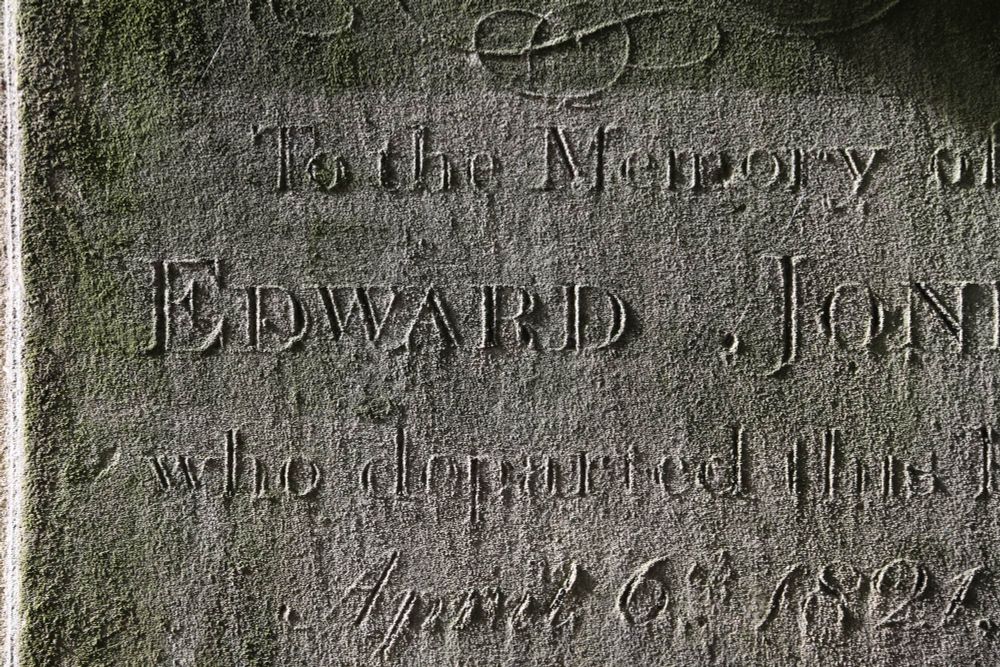 To the Memory of
EDWARD JON
who departed this
April 6th 1821